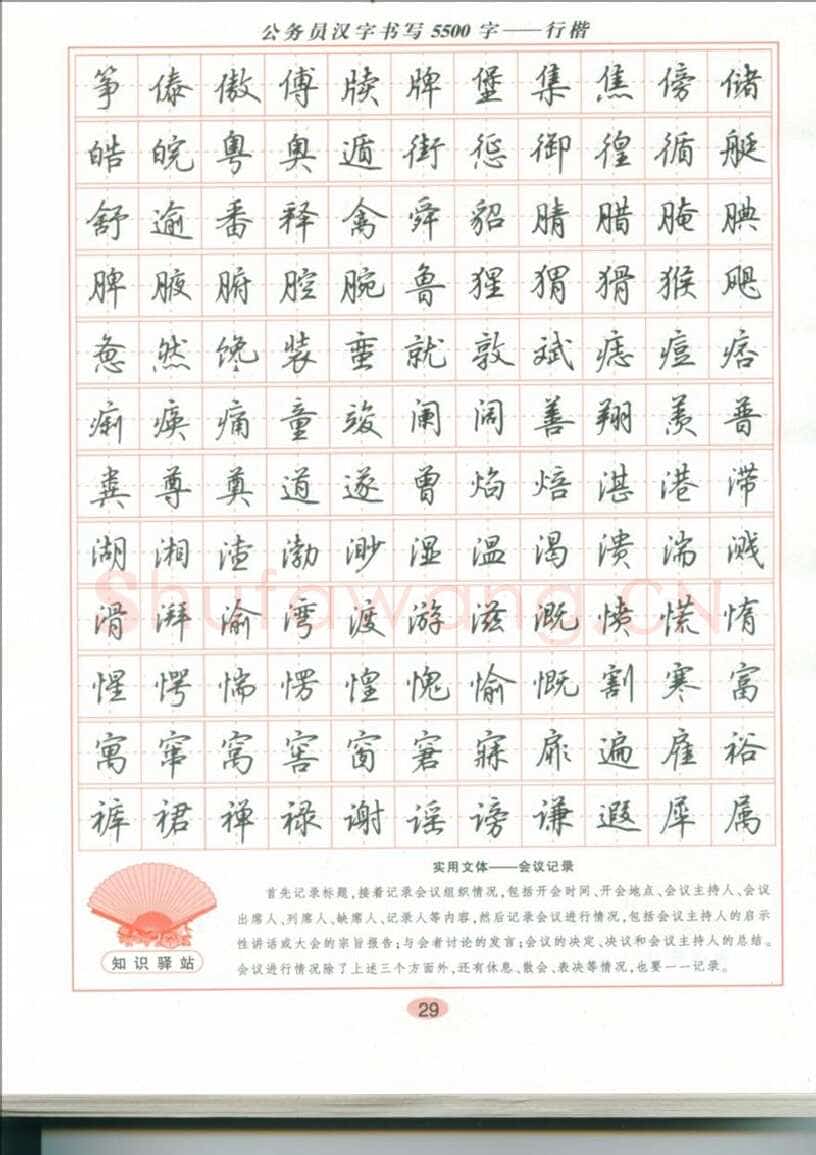 公务员汉字书写5500字——行楷
筝傣傲傅牍牌堡集焦傍储
皓皖粤奥遁街惩御徨循艇
舒逾番释禽舜貂腈腊腌腆
脾腋腑腔腕鲁猩猬猾猴飓
惫然馋装蛮就敦斌痣痘痞
痢痪痛童竣阑阔善翔羡普
粪尊奠道遂曾焰焙湛港滞
湖湘渣渤渺湿温渴溃湍溅
滑湃渝湾渡游滋溉愤慌惰
惺愕惴愣惶愧愉慨割寒富
寓窜窝窖窗窘寐扉遍雇裕
裤裙禅禄谢谣谤谦遐犀属
Shufawang.CN
实用文体——会议记录
首先记录标题,接着记录会议组织情况,包括开会时间、开会地点、会议主持人、会议
出席人、列席人、缺席人、记录人等内容,然后记录会议进行情况,包括会议主持人的启示
性讲话或大会的宗旨报告;与会者讨论的发言;会议的决定、决议和会议主持人的总结。
会议进行情况除了上述三个方面外,还有休息、散会、表决等情况,也要一一记录。
知识驿站
29